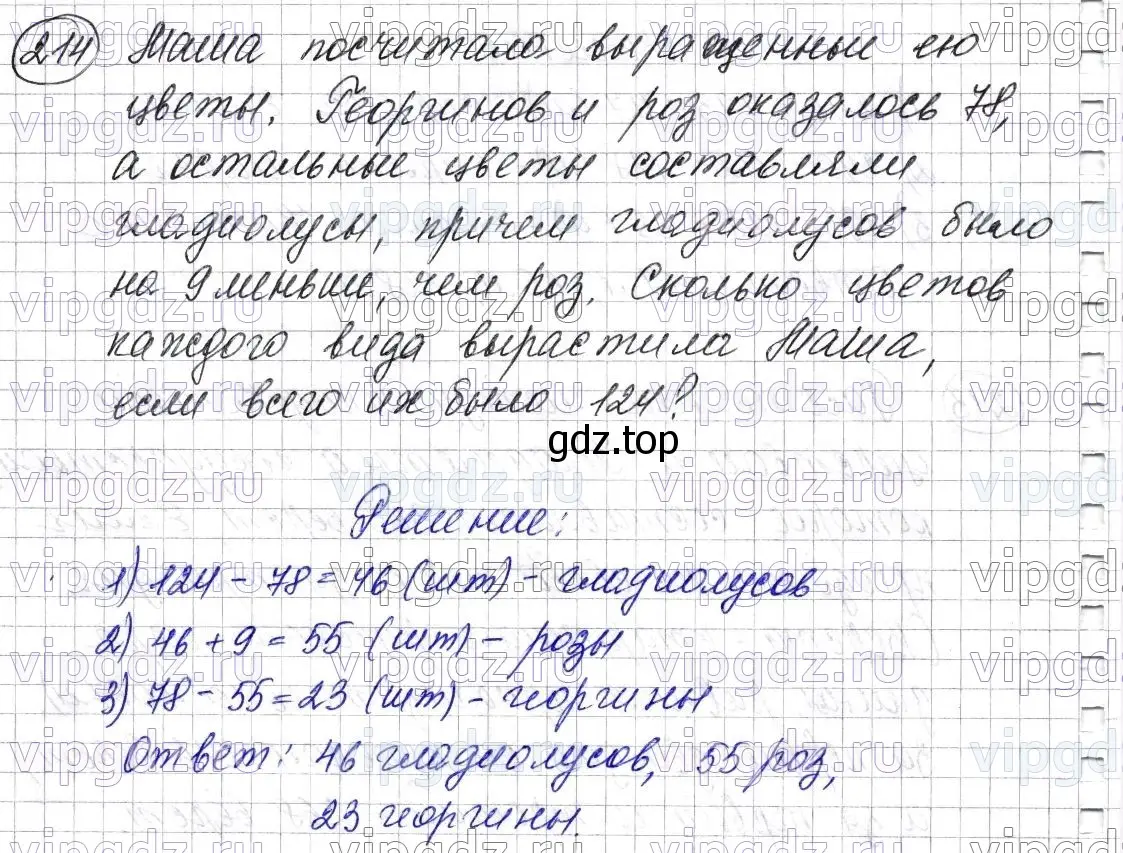 214 Маша посчитала выращенные ею
цветы. Георгинов и роз оказалось 78,
а остальные цветы составляли
гладиолусы, причем гладиолусов было
на 9 меньше, чем роз. Сколько цветов
каждого вида вырастила Маша,
если всего их было 124?
gdz.top
Решение:
1) 124 - 78 = 46 (шт) - гладиолусов
2) 46 + 9 = 55 (шт) - розы
3) 78 - 55 = 23 (шт) - георгины
Ответ: 46 гладиолусов, 55 роз,
23 георгины.
vipgdz.ru